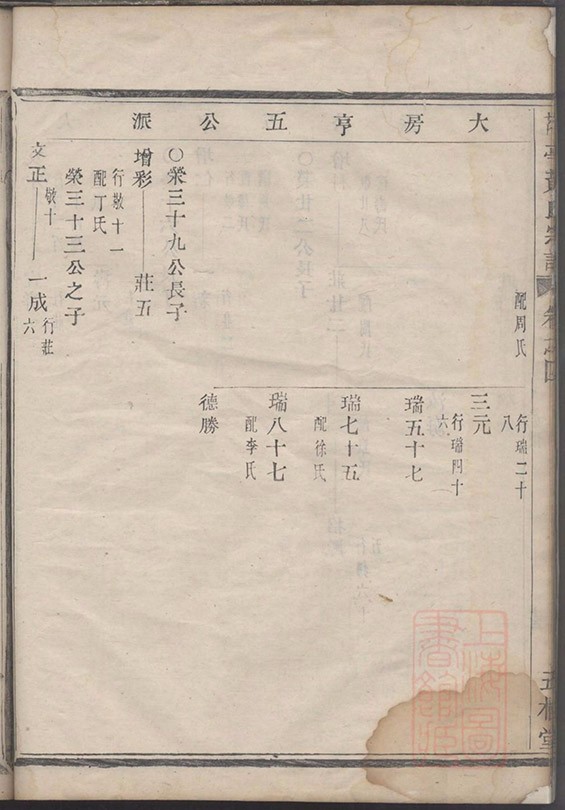 大房亨五公派
黃氏宗譜
配周氏
行瑞二十八
三元
行瑞四十六
瑞五十七
瑞七十五
配徐氏
瑞八十七
配李氏
德勝
○榮三十九公長子
增彩
莊五
行敬十一
配丁氏
榮三十三公之子
文正
敬十
一成
行莊六
上海圖書館藏